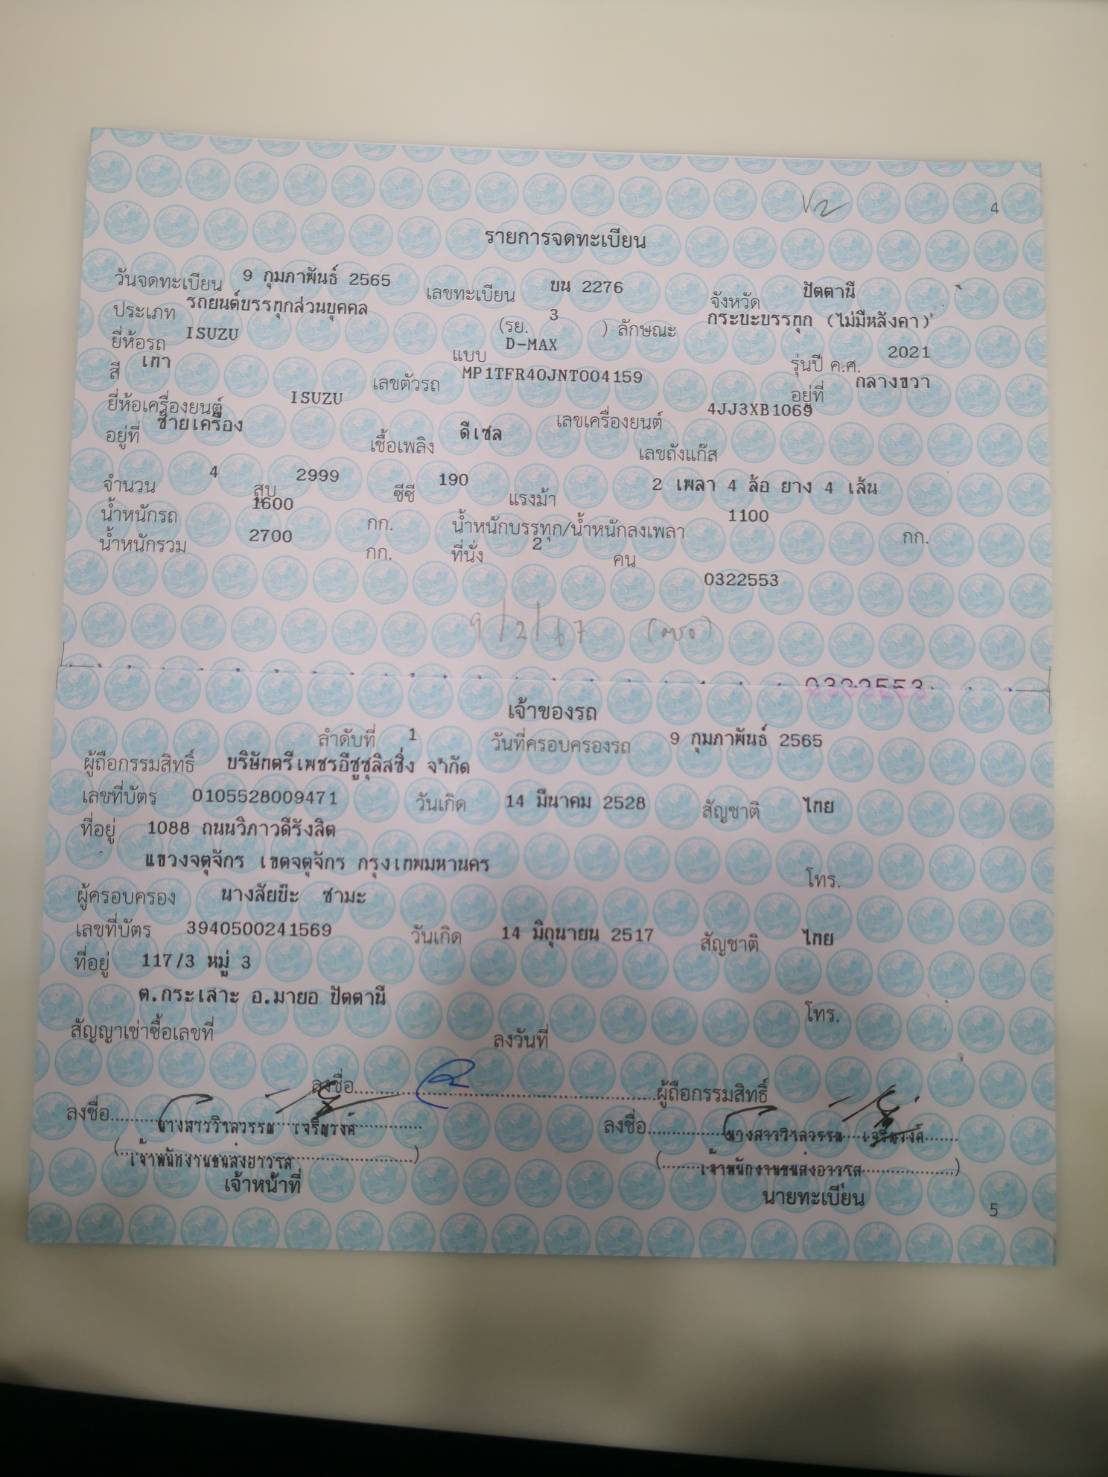 4
รายการจดทะเบียน
วันจดทะเบียน 9 กุมภาพันธ์ 2565 เลขทะเบียน ขน 2276 จังหวัด ปัตตานี
ประเภท รถยนต์บรรทุกส่วนบุคคล (รย. 3 ) ลักษณะ กระบะบรรทุก (ไม่มีหลังคา)
ยี่ห้อรถ ISUZU แบบ D-MAX รุ่นปี ค.ศ. 2021
สี เทา เลขตัวรถ MP1TFR40JNT004159 อยู่ที่ กลางขวา
ยี่ห้อเครื่องยนต์ ISUZU เลขเครื่องยนต์ 4JJ3XB1069
อยู่ที่ ซ้ายเครื่อง เชื้อเพลิง ดีเซล เลขถังแก๊ส
จำนวน 4 สูบ 2999 ซีซี 190 แรงม้า 2 เพลา 4 ล้อ ยาง 4 เส้น
น้ำหนักรถ 1600 กก. น้ำหนักบรรทุก/น้ำหนักลงเพลา 1100 กก.
น้ำหนักรวม 2700 กก. ที่นั่ง 2 คน
0322553
9/2/67
0322553
เจ้าของรถ
ลำดับที่ 1 วันที่ครอบครองรถ 9 กุมภาพันธ์ 2565
ผู้ถือกรรมสิทธิ์ บริษัทตรีเพชรอีซูซุลิสซิ่ง จำกัด
เลขที่บัตร 0105528009471 วันเกิด 14 มีนาคม 2528 สัญชาติ ไทย
ที่อยู่ 1088 ถนนวิภาวดีรังสิต
แขวงจตุจักร เขตจตุจักร กรุงเทพมหานคร โทร.
ผู้ครอบครอง นางสัยบ๊ะ ซามะ
เลขที่บัตร 3940500241569 วันเกิด 14 มิถุนายน 2517 สัญชาติ ไทย
ที่อยู่ 117/3 หมู่ 3
ต.กระเสาะ อ.มายอ ปัตตานี โทร.
สัญญาเช่าซื้อเลขที่ ลงวันที่
ลงชื่อ ผู้ถือกรรมสิทธิ์
ลงชื่อ นางสาววิาลวรรณ เจริญวงค์ ลงชื่อ นางสาววิาลวรรณ เจริญวงค์
(เจ้าพนักงานขนส่งอาวุโส) (เจ้าพนักงานขนส่งอาวุโส)
เจ้าหน้าที่ นายทะเบียน
5